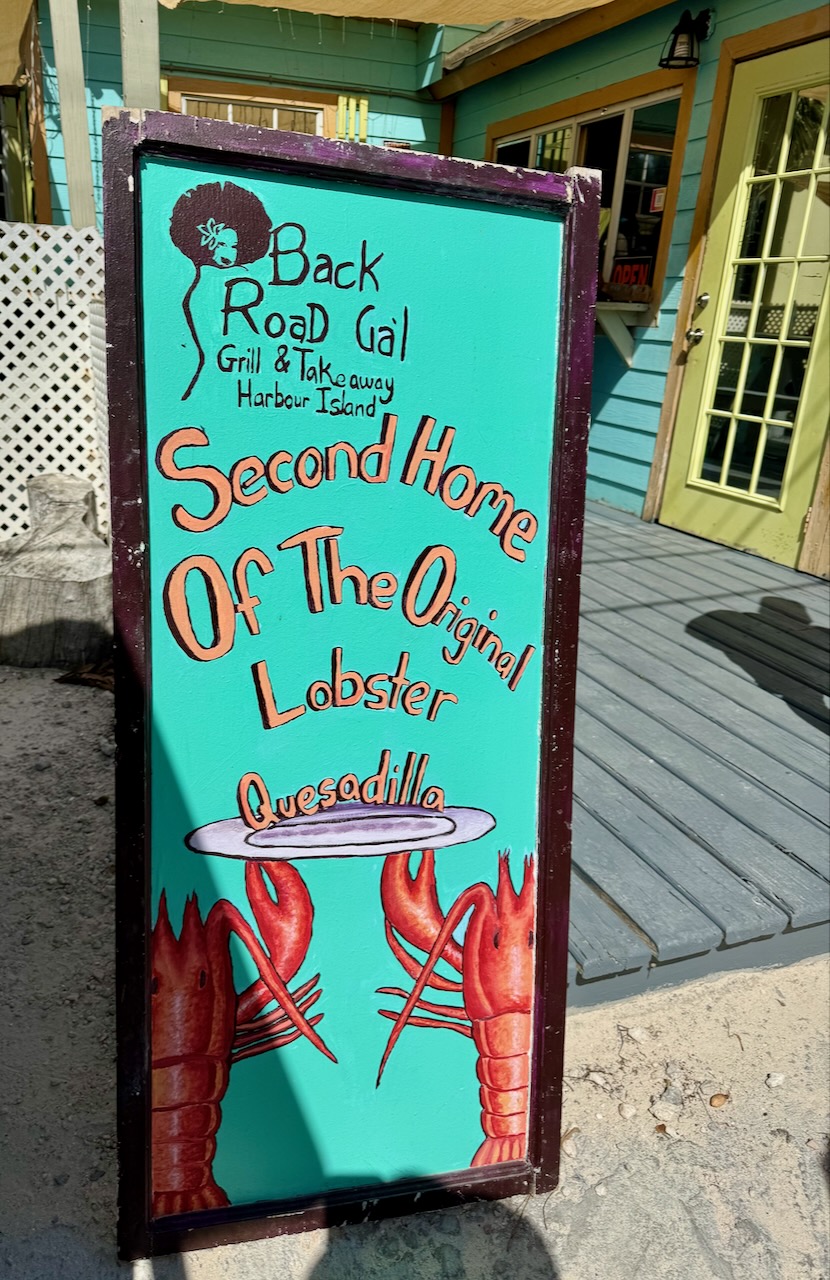 Back
Road Ga'l
Grill & Takeaway
Harbour Island
Second Home
Of The Original
Lobster
Quesadilla
OPEN